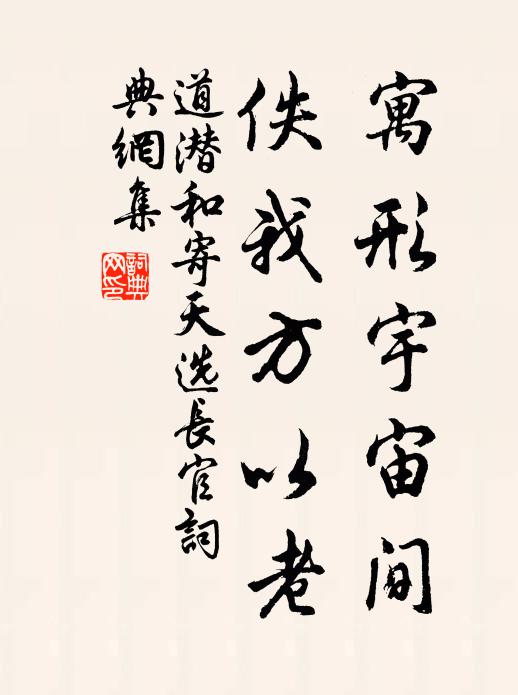 寓形宇宙间
佚我方以老
道潜和寄天选长官詞
典網集
詞典网印